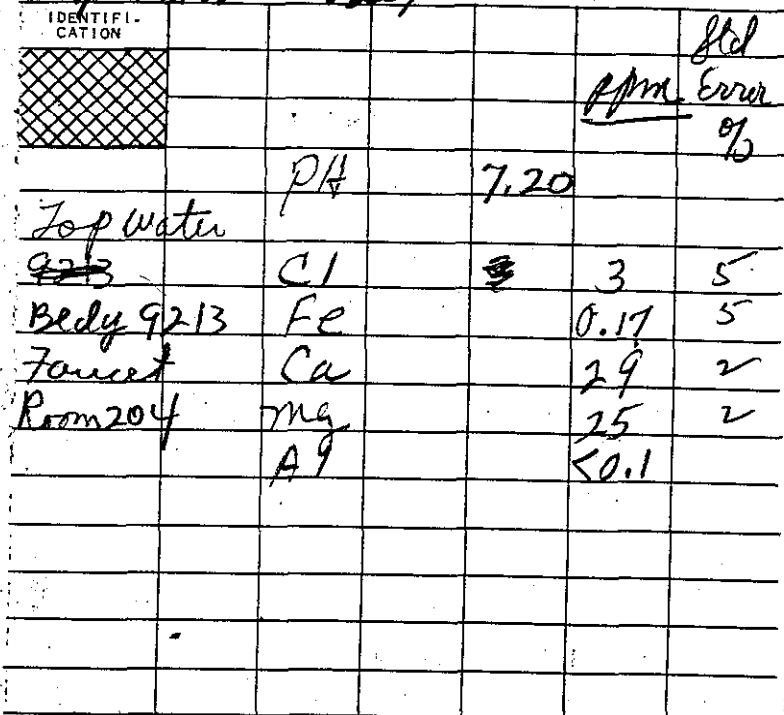 IDENTIFI-
CATION
Std
ppm Error
%
pH 7.20
Tap water
9213 Cl 3 5
Bldg 9213 Fe 0.17 5
Faucet Ca 29 2
Room 204 Mg 25 2
<0.1